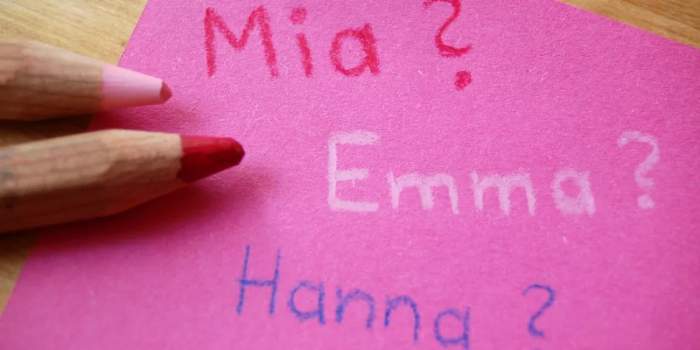 Mia ?
Emma ?
Hanna ?